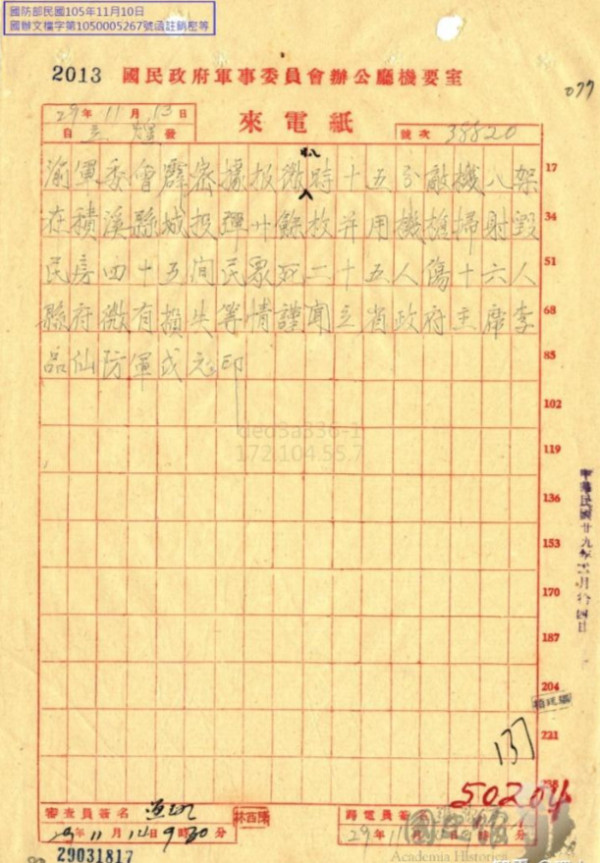 國防部民國105年11月10日
國辦文檔字第1050005267號函註銷密等
2013 國民政府軍事委員會辦公廳機要室
077
29年11月13日
來電紙
自立煌發
號次 38820
渝軍委會霹密據報微時十五分敵機八架
在積溪縣城投彈廿餘放并用機槍掃射毀
民房四十五間民眾死二十五人傷十六人
縣府微有損失等情謹聞立省政府主席李
品仙防軍戌元印
17
34
51
68
85
102
119
136
153
170
187
204
221
ded3a336-1
172.104.55.7
中華民國廿九年
137
50204
審查員簽名
林西陽
29年11月14日9時30分
譯電員簽名
29年11月
29031817
國史館
Academia Historica